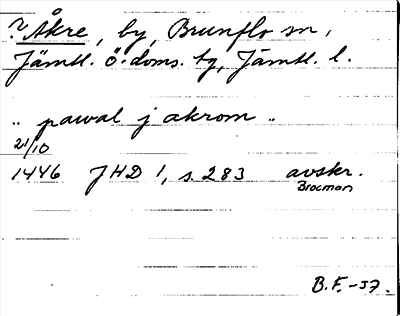 ? Åkre, by, Brunflo sn,
Jämtl. ö. doms. tg, Jämtl. l.
" pawal j akrom "
21/10
1446 JHD 1, s. 283 avskr.
Brocman
B.F. -57.